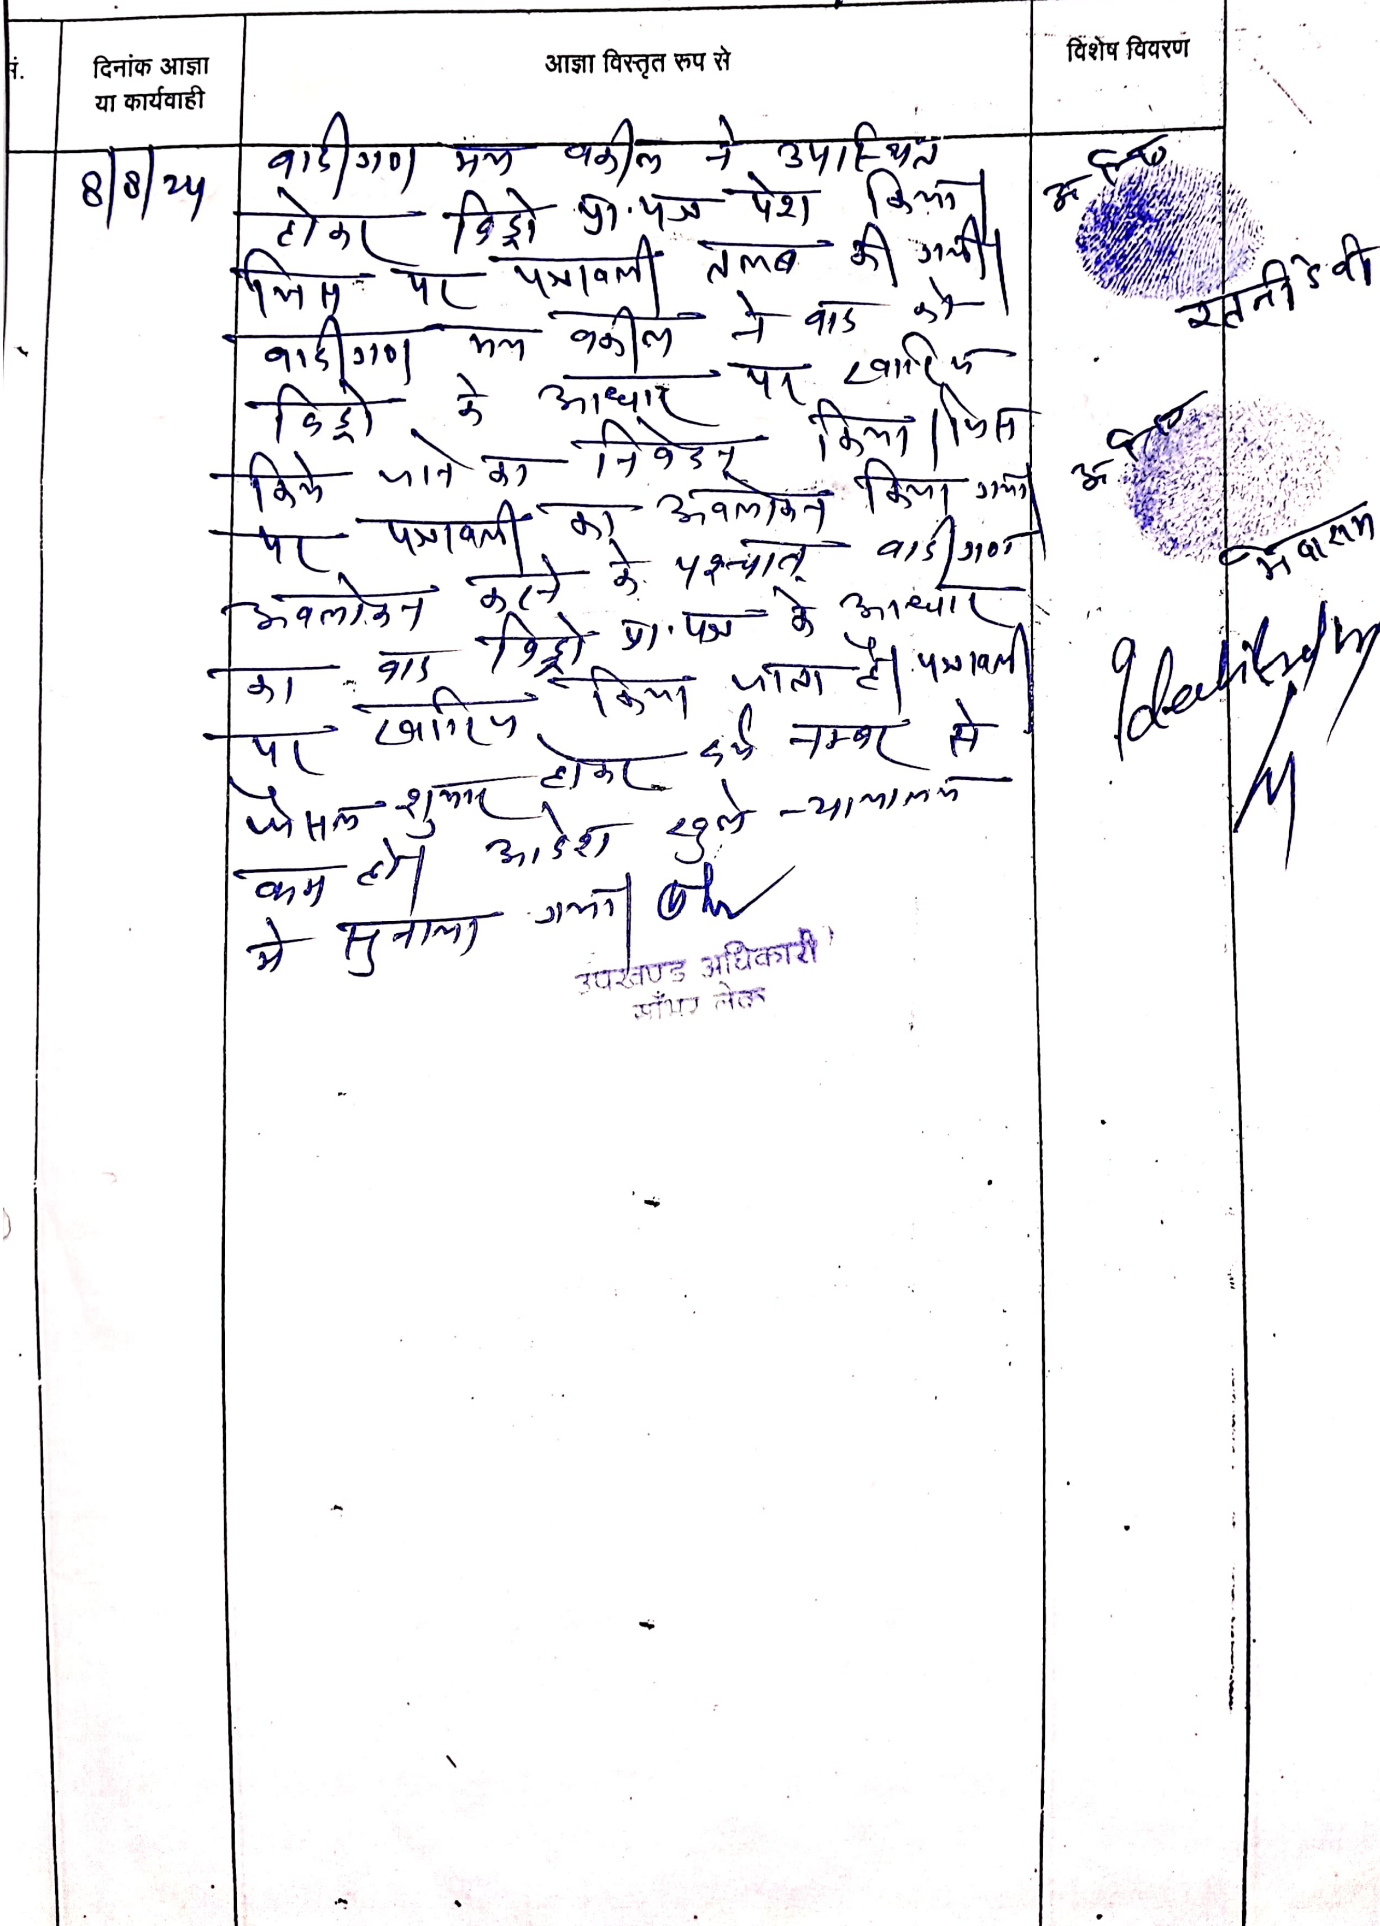 नं.
दिनांक आज्ञा
या कार्यवाही
आज्ञा विस्तृत रुप से
विशेष विवरण
8/8/24
वादीगण मय वकील ने उपस्थित
होकर विड्रो प्रा.पत्र पेश किया।
जिस पर पत्रावली तलब की गयी।
वादीगण मय वकील ने वाद को
विड्रो के आधार पर खारिज
किये जाने का निवेदन किया। जिस
पर पत्रावली का अवलोकन किया गया
अवलोकन करने के पश्चात् वादीगण
का वाद विड्रो प्रा.पत्र के आधार
पर खारिज किया जाता है। पत्रावली
फैसल शुमार होकर दर्ज नम्बर से
कम हो। आदेश खुले न्यायालय
मे सुनाया गया।
उपखण्ड अधिकारी
साँभर लेक
रतनी देवी
Identified by